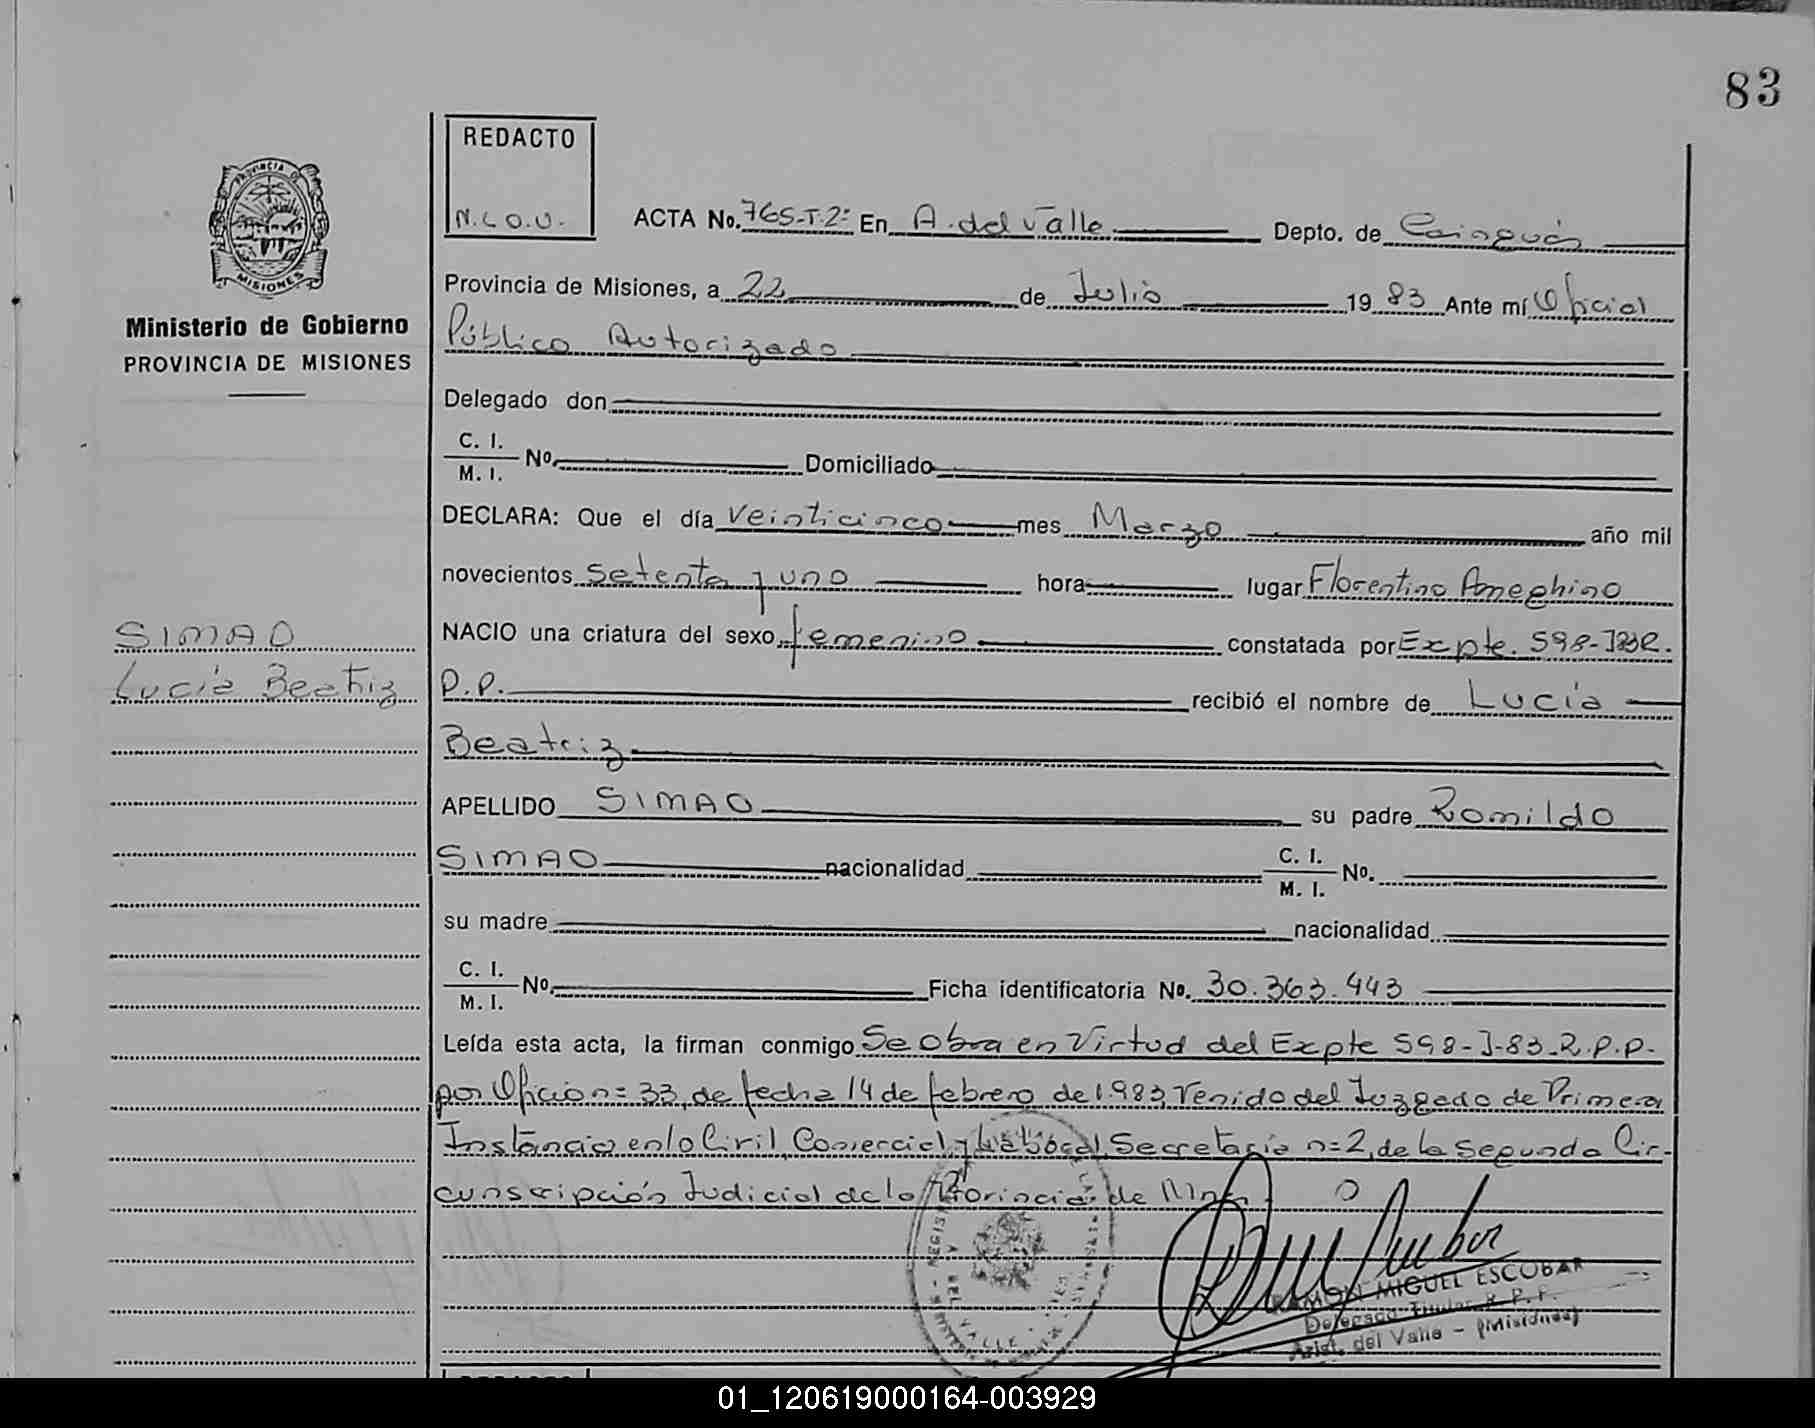 83
REDACTO
N.L.O.V.
PROVINCIA DE
MISIONES
Ministerio de Gobierno
PROVINCIA DE MISIONES
ACTA No. 765-T-2º En A. del Valle Depto. de Cainguás
Provincia de Misiones, a 22 de Julio 19 83 Ante mí Oficial
Público Autorizado
Delegado don
C. I.
M. I. Nº Domiciliado
DECLARA: Que el día Veinticinco mes Marzo año mil
novecientos setenta y uno hora lugar Florentino Ameghino
NACIO una criatura del sexo femenino constatada por Expte. 598-
SIMAO
Lucía Beatriz
P.P. recibió el nombre de Lucía
Beatriz
APELLIDO SIMAO su padre Romildo
SIMAO nacionalidad C. I. M. I. Nº.
su madre nacionalidad
C. I.
M. I. Nº. Ficha identificatoria Nº. 30.363.443
Leída esta acta, la firman conmigo Se Obra en Virtud del Expte 598-J-83-R.P.P.-
por Oficio n= 33, de fecha 14 de febrero de 1.983, Venido del Juzgado de Primera
Instancia en lo Civil, Comercial y Laboral, Secretaría n=2, de la Segunda Cir-
cunscripción Judicial de la Provincia de Mnes.
RAMON MIGUEL ESCOBAR
Delegado Titular R. P. P.
Arist. del Valle - (Misiones)
01_120619000164-003929